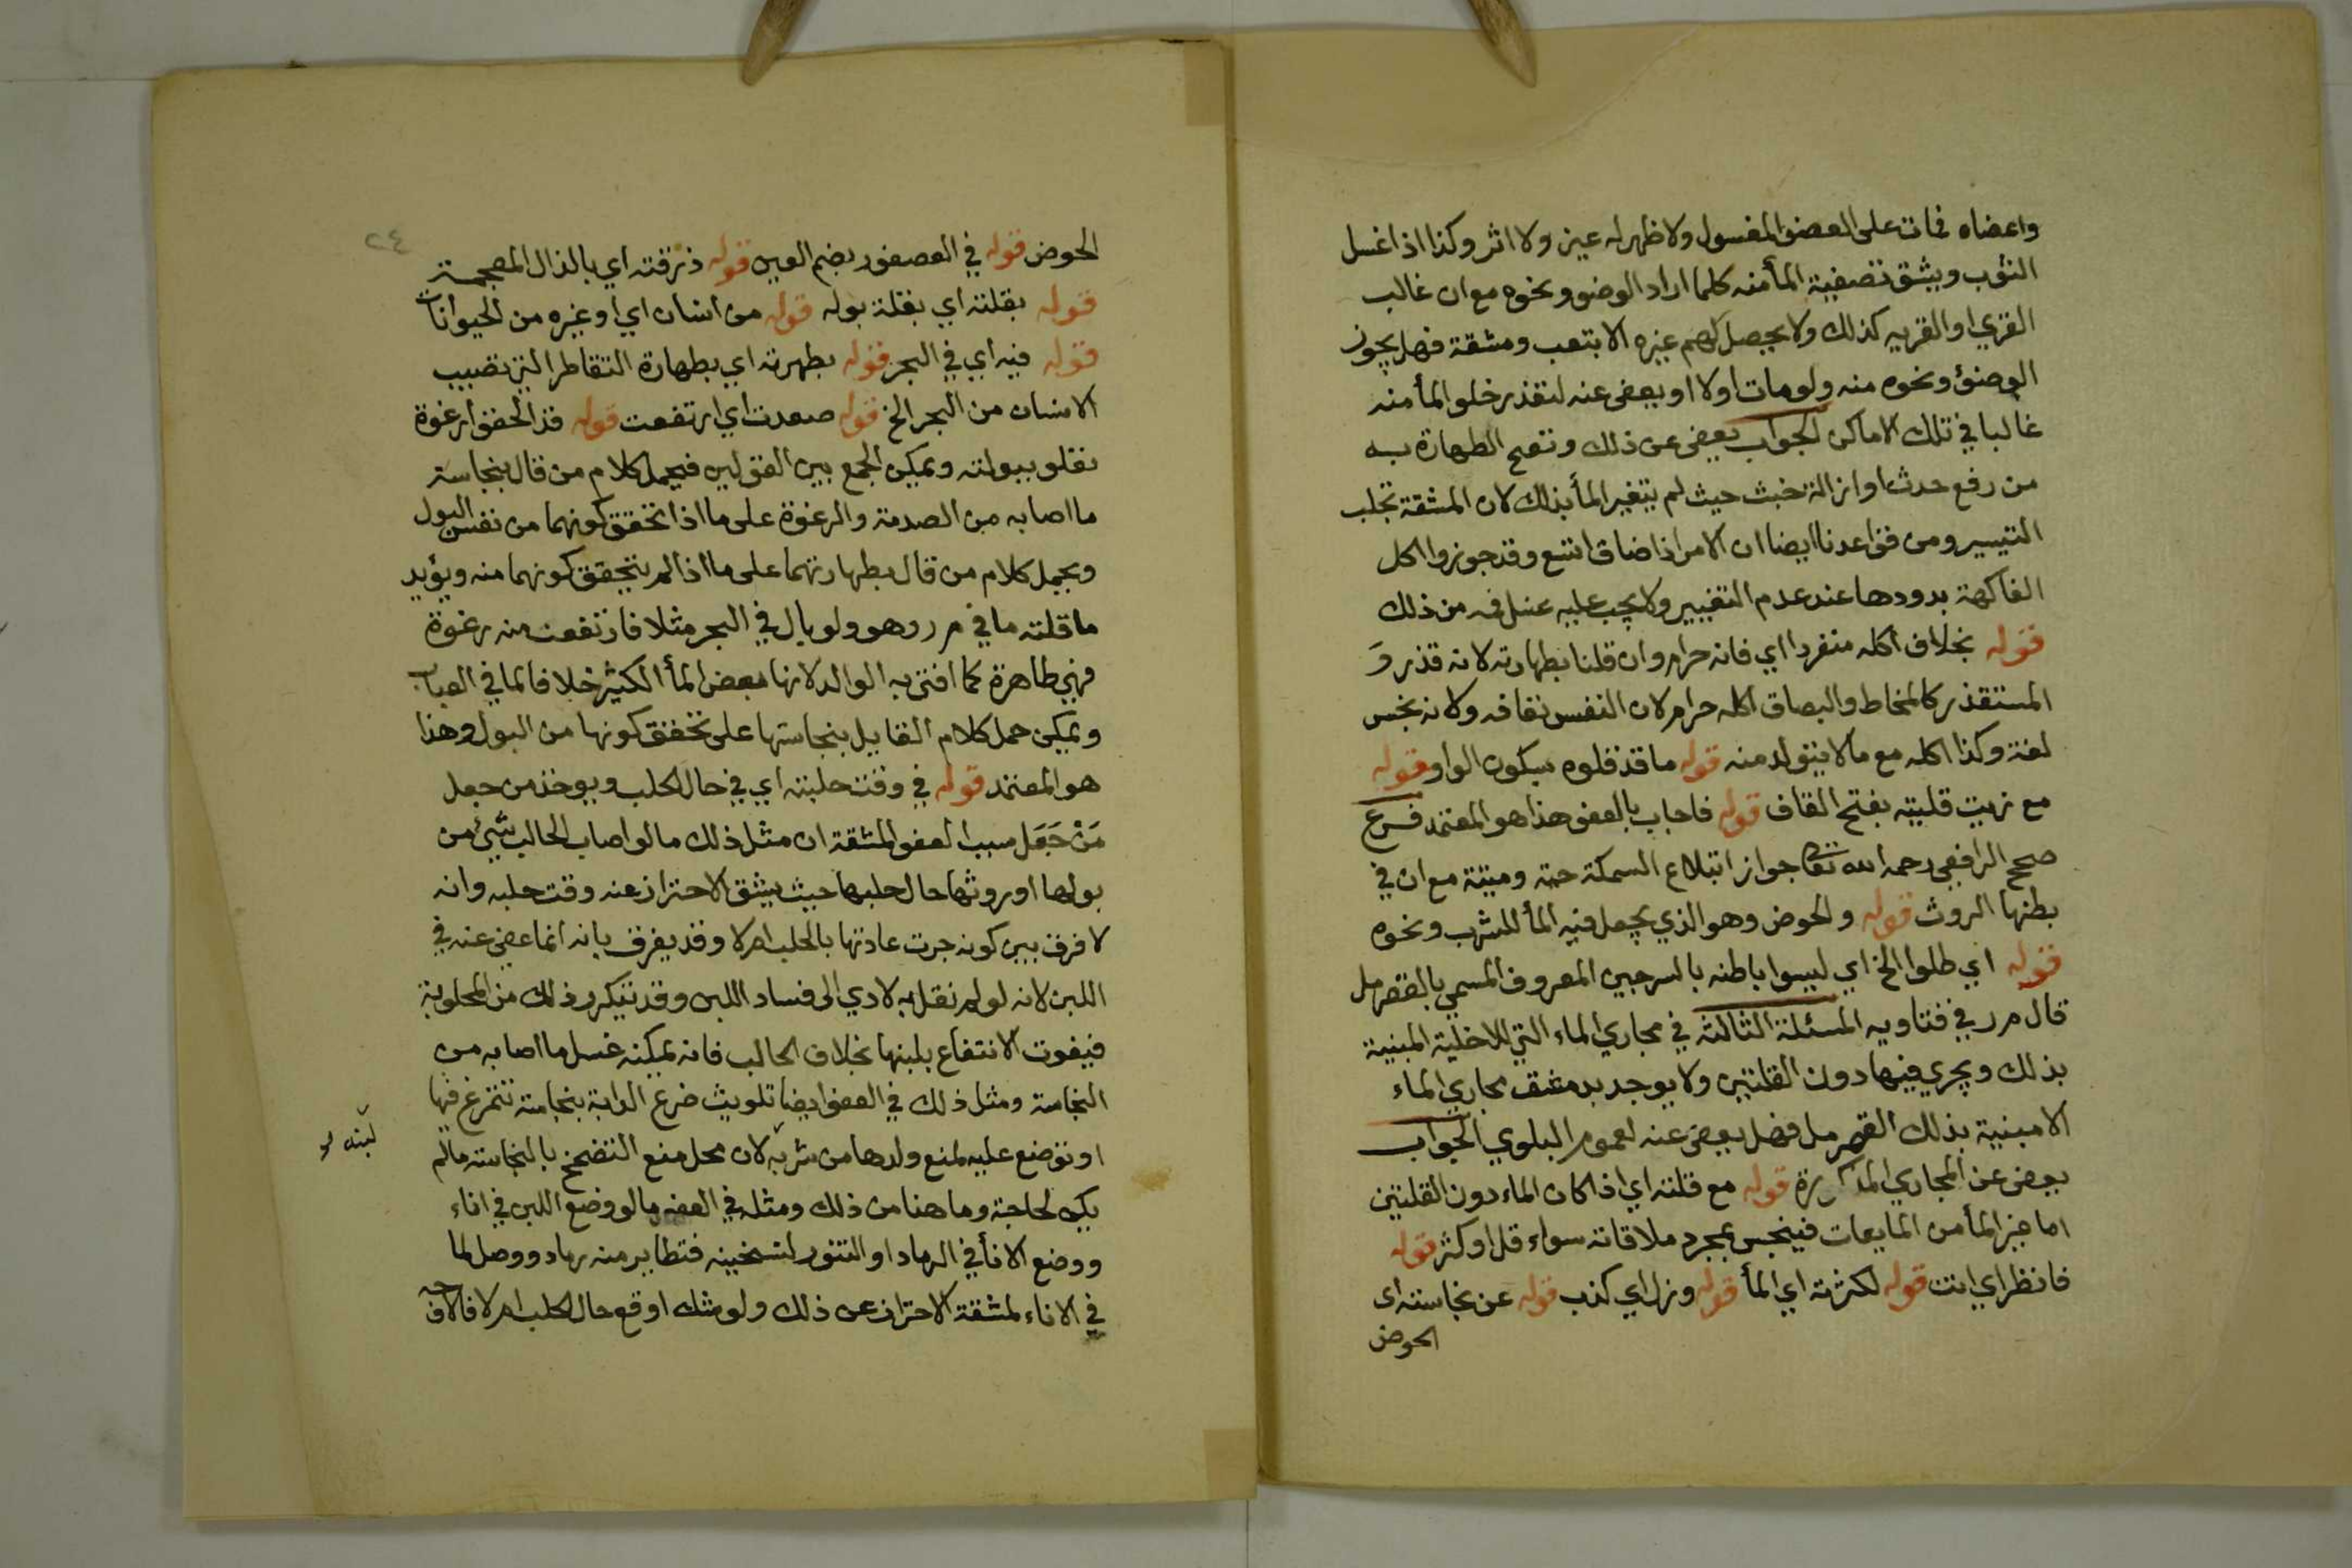 واعضاه فمات على العضو المغسول ولا ظهر له عين ولا اثر وكذا اذا غسل
الثوب ويشق تصفية المأ منه كلما اراد الوضو ونحوه مع ان غالب
القري او القريه كذلك ولا يحصل لهم غيره الا بتعب ومشقة فهل يجوز
الوضؤ ونحوه منه ولو مات اولا او يعفى عنه لتعذر خلو المأ منه
غالبا في تلك الاماكن الجواب يعفى عن ذلك وتصح الطهارة به
من رفع حدث او ازالة خبث حيث لم يتغير المأ بذلك لان المشقة تجلب
التيسير ومن قواعدنا ايضا ان الامر اذا ضاق اتسع وقد جوزوا اكل
الفاكهة بدودها عند عدم التغيير ولا يجب عليه غسل فمه من ذلك
قوله بخلاف اكله منفردا اي فانه حرام وان قلنا بطهارته لانه قذر و
المستقذر كالمخاط والبصاق اكله حرام لان النفس تعافه ولانه نجس
لغة وكذا اكله مع ما لا يتولد منه قوله ما قذ قلوه بسكون الواو قوله
مع زيت قليته بفتح القاف قوله فاجاب بالعفو هذا هو المعتمد فرع
صحح الرافعي رحمه الله تعا جواز ابتلاع السمكة حية وميتة مع ان في
بطنها الروث قوله والحوض وهو الذي يجعل فيه المأ للشرب ونحوه
قوله اي طلوا الخ اي ليسوا باطنه بالسرجين المعروف المسمي بالقصرمل
قال م ر في فتاويه المسئلة الثالثة في مجاري الماء التي للاخلية المبنية
بذلك ويجري فيها دون القلتين ولا يوجد بدمشق مجاري الماء
الا مبنية بذلك القصرمل فهل يعفى عنه لعموم البلوي الجواب
يعفى عن المجاري المذكورة قوله مع قلته اي اذا كان الماء دون القلتين
اما غير المأ من المايعات فينجس بمجرد ملاقاته سواء قل او كثر قوله
فانظر اي انت قوله لكثرته اي المأ قوله ونزل اي كذب قوله عن نجاسته اي
الحوض
٢٤
الحوض قوله في العصفور بضم العين قوله ذرقته اي بالذال المعجمة
قوله بقلته اي بقلة بوله قوله من انسان اي او غيره من الحيوانات
قوله فيه اي في البحر قوله بطهرته اي بطهارة التقاطر التي تصيب
الانسان من البحر الخ قوله صعدت اي ارتفعت قوله قد الحقوا رغوة
تعلو ببولته ويمكن الجمع بين القولين فيحمل كلام من قال بنجاسة
ما اصابه من الصدمة والرغوة على ما اذا تحقق كونهما من نفس البول
ويحمل كلام من قال بطهارتهما على ما اذا لم يتحقق كونهما منه ويؤيد
ما قلته ما في م ر وهو ولو بال في البحر مثلا فارتفعت منه رغوة
فهي طاهرة كما افتى به الوالد لانها بعض المأ الكثير خلافا لما في العباب
ويمكن حمل كلام القايل بنجاستها على تحقق كونها من البول وهذا
هو المعتمد قوله في وقت حلبته اي في حال الحلب ويوخذ من جعل
مَنْ جَعَل سبب العفو المشقة ان مثل ذلك ما لو اصاب الحالب شيء من
بولها او روثها حال حلبها حيث يشق الاحتراز عنه وقت حلبه وانه
لا فرق بين كونه جرت عادتها بالحلب ام لا وقد يفرق بانه انما عفي عنه في
اللبن لانه لو لم نقل به لادي الى فساد اللبن وقد يتكرر ذلك من المحلوبة
فيفوت الانتفاع بلبنها بخلاف الحالب فانه يمكنه غسل ما اصابه من
النجاسة ومثل ذلك في العفو ايضا تلويث ضرع الدابة بنجاسة تتمرغ فيها
او توضع عليه لمنع ولدها من شربه لان محل منع التضمخ بالنجاسة ما لم
لبنه
يكن لحاجة وما هنا من ذلك ومثله في العفو ما لو وضع اللبن في اناء
ووضع الانأ في الرماد او التنور لتسخينه فتطاير منه رماد ووصل لما
في الاناء لمشقة الاحتراز عن ذلك ولو شك اوقع حال الحلب ام لا فالاوجه